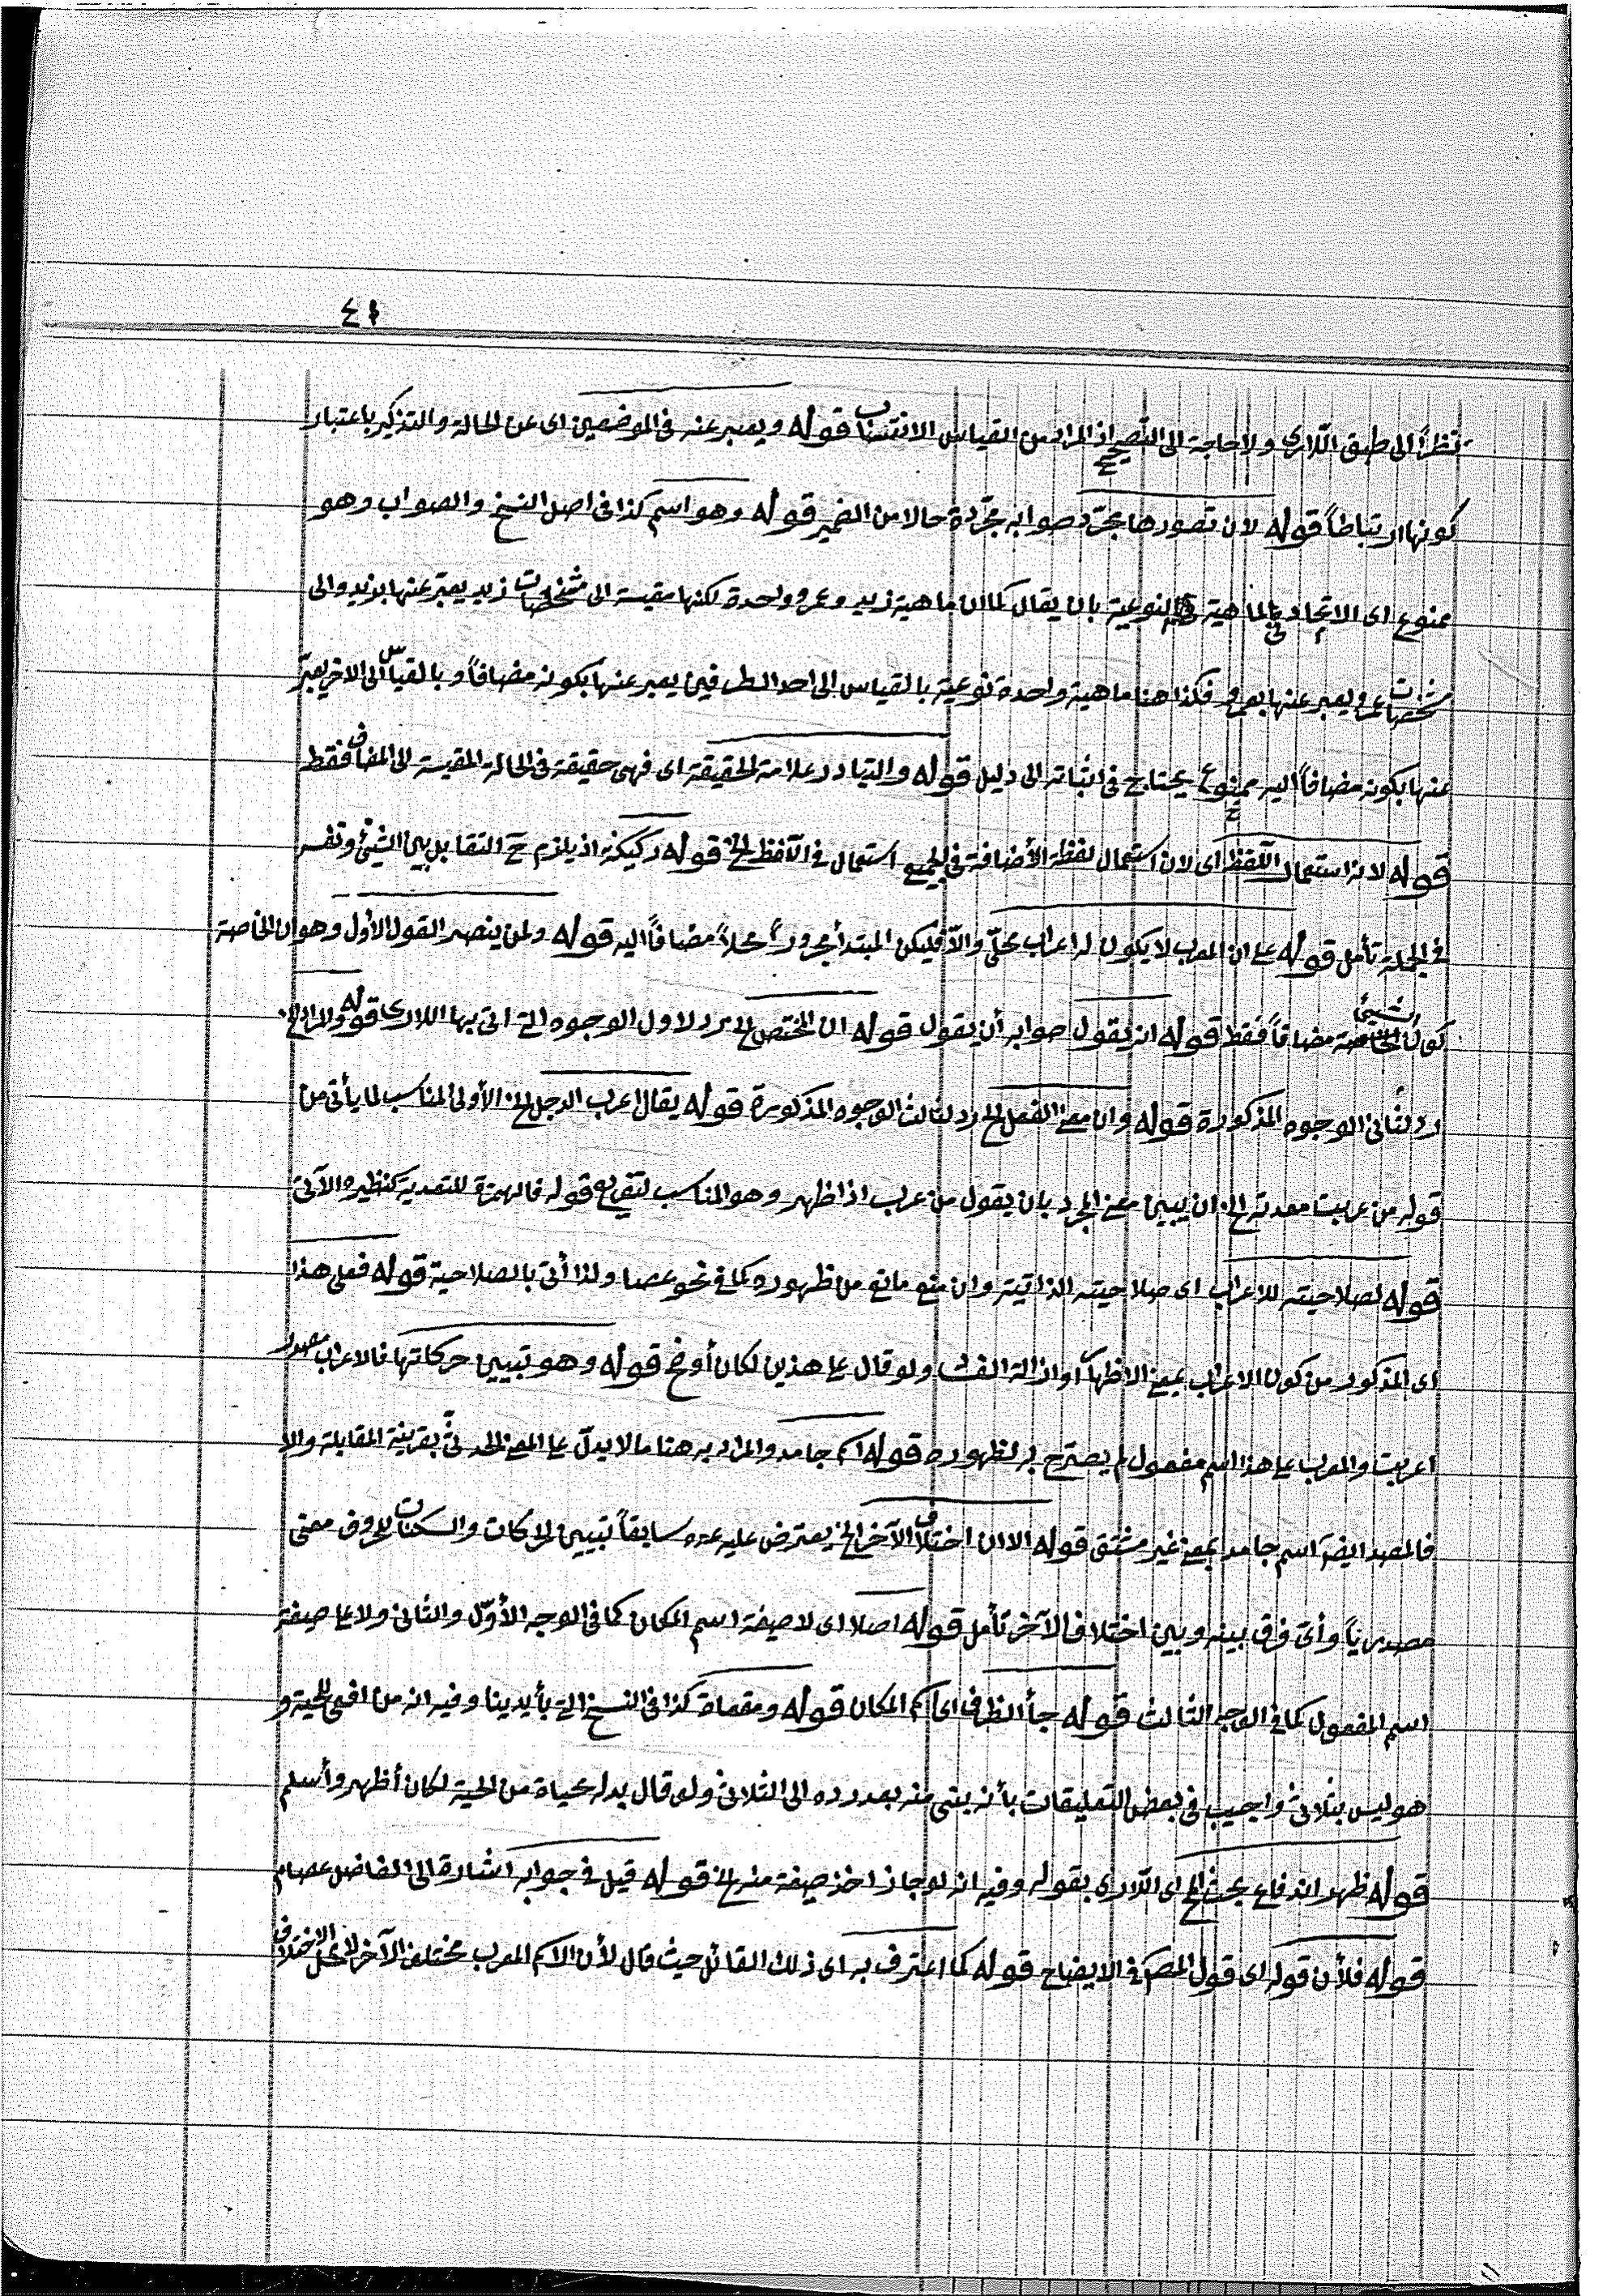 ٤١
نظراً الى طبق اللارى ولا حاجة الى التصحيح اذ المراد من القياس الانتساب قوله ويعتبر عنه فى الموضعين اى عن الحالة والتذكير باعتبار
كونها ارتباطاً قوله لان تصورها بمجرّد صوابه مجرّدة حالا من الضمير قوله وهو اسم كذا فى اصل النسخ والصواب وهو
ممنوع اى الاتحاد فى الماهية النوعية بان يقال كما ان ماهية زيد وعمرو واحدة لكنها مقيسة الى مشخصات زيد يعبّر عنها بزيد والى
مشخصات عمرو يعبر عنها بعمرو فكذا هنا ماهية واحدة نوعية بالقياس الى احد الطرفين يعبر عنها بكونه مضافاً وبالقياس الى الاخر يعبّر
عنها بكونه مضافاً اليه ممنوع يحتاج فى اثباته الى دليل قوله والتبادر علامة الحقيقة اى فهى حقيقة فى الحالة المقيسة الى المضاف فقط
قوله لانه استعمال اللفظ اى لان استعمال لفظة الأضافة فى الجميع استعمال فى اللفظ الخ قوله ركيكة اذ يلزم ح التقابل بين الشئ ونفسه
فى الجملة تأمل قوله على ان المعرب لا يكون له اعراب محلّى والّا فليكن المبتدأ مجروراً محلاً مضافاً اليه قوله ولمن ينصر القول الأول وهو ان الخاصة
كون الشئ مضافاً فقط قوله انه يقول صوابه أن يقول قوله ان المختص الخ رد لاول الوجوه التى اتى بها اللارى قوله والمراد الخ
رد لثانى الوجوه المذكورة قوله وان معنى الفعل الخ رد لثالث الوجوه المذكورة قوله يقال اعرب الرجل الخ الأولى المناسب لما يأتى من
قوله من عربت معدته الخ ان يبين معنى المجرد بان يقول من عرب اذا ظهر وهو المناسب لتفريع قوله فالهمزة للتعدية كنظيره الآتى
قوله لصلاحيته للاعراب اى صلاحيته الذاتية وان منع مانع من ظهوره كما فى نحو عصا ولذا أتى بالصلاحية قوله فعلى هذا
اى المذكور من كون الاعراب بمعنى الاظهار او ازالة الفساد ولو قال على هذين لكان أوضح قوله وهو تبيين حركاتها فالاعراب مصدر
اعربت والمعرب على هذا اسم مفعول لم يصرّح به لظهوره قوله اسم جامد والمراد به هنا ما لا يدلّ على المعنى الحدثىّ بقرينة المقابلة والا
فالمصدر ايضا اسم جامد بمعنى غير مشتق قوله الا ان اختلاف الآخر الخ يعترض عليه عده سابقاً تبيين الحركات والسكنات للحروف معنى
مصدرياً وأىّ فرق بينه وبين اختلاف الآخر تأمل قوله اصلا اى لا صيغة اسم المكان كما فى الوجه الأوّل والثانى ولا على صيغة
اسم المفعول كما فى الوجه الثالث قوله جاء الظرف اى اسم المكان قوله ومفعاة كذا فى النسخ التى بأيدينا وفيه انه من افعى للحية و
هو ليس بثلاثى واجيب فى بعض التعليقات بأنه بنى منه بعد رده الى الثلاثى ولو قال بدله محياة من الحية لكان أظهر وأسلم
قوله ظهر اندفاع بحث الخ اى اللارى بقوله وفيه انه لو جاز اخذ صيغة منه الخ قوله قيل فى جوابه اشارة الى الفاضل عصام
قوله فلأن قوله اى قول المص فى الايضاح قوله كما اعترف به اى ذلك القائل حيث قال لأن الاسم المعرب مختلف الآخر لا محل الاختلاف